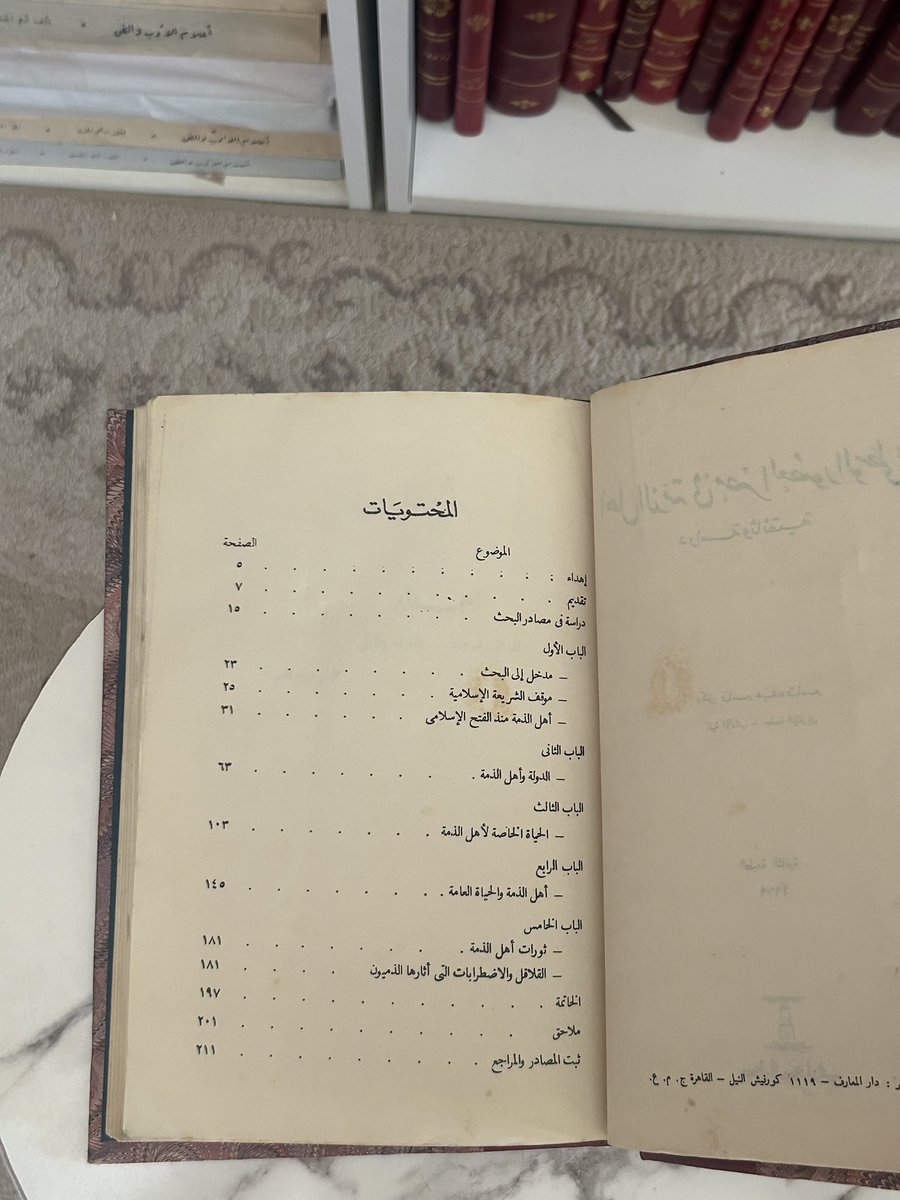 أعلام الأدب والفن
المحْتويَات
الموضوع الصفحة
إهداء : . . . . . . . . . . ٥
تقديم . . . . . . . . . . . ٧
دراسة فى مصادر البحث . . . . . . . ١٥
الباب الأول
– مدخل إلى البحث . . . . . . . ٢٣
– موقف الشريعة الإسلامية . . . . . . . ٢٥
– أهل الذمة منذ الفتح الإسلامى . . . . . . ٣١
الباب الثانى
– الدولة وأهل الذمة . . . . . . . ٦٣
الباب الثالث
– الحياة الخاصة لأهل الذمة . . . . . . . ١٠٣
الباب الرابع
– أهل الذمة والحياة العامة . . . . . . . . ١٤٥
الباب الخامس
– ثورات أهل الذمة . . . . . . . ١٨١
– القلاقل والاضطرابات التى أثارها الذميون . . . . ١٨١
الخاتمة . . . . . . . . . . . ١٩٧
ملاحق . . . . . . . . . . ٢٠١
ثبت المصادر والمراجع . . . . . . . . . ٢١١
ر : دار المعارف – ١١١٩ كورنيش النيل – القاهرة ج. م. ع.
أهل الذمة فى مصر العصور الوسطى
دراسة وثائقية
الطبعة الثانية